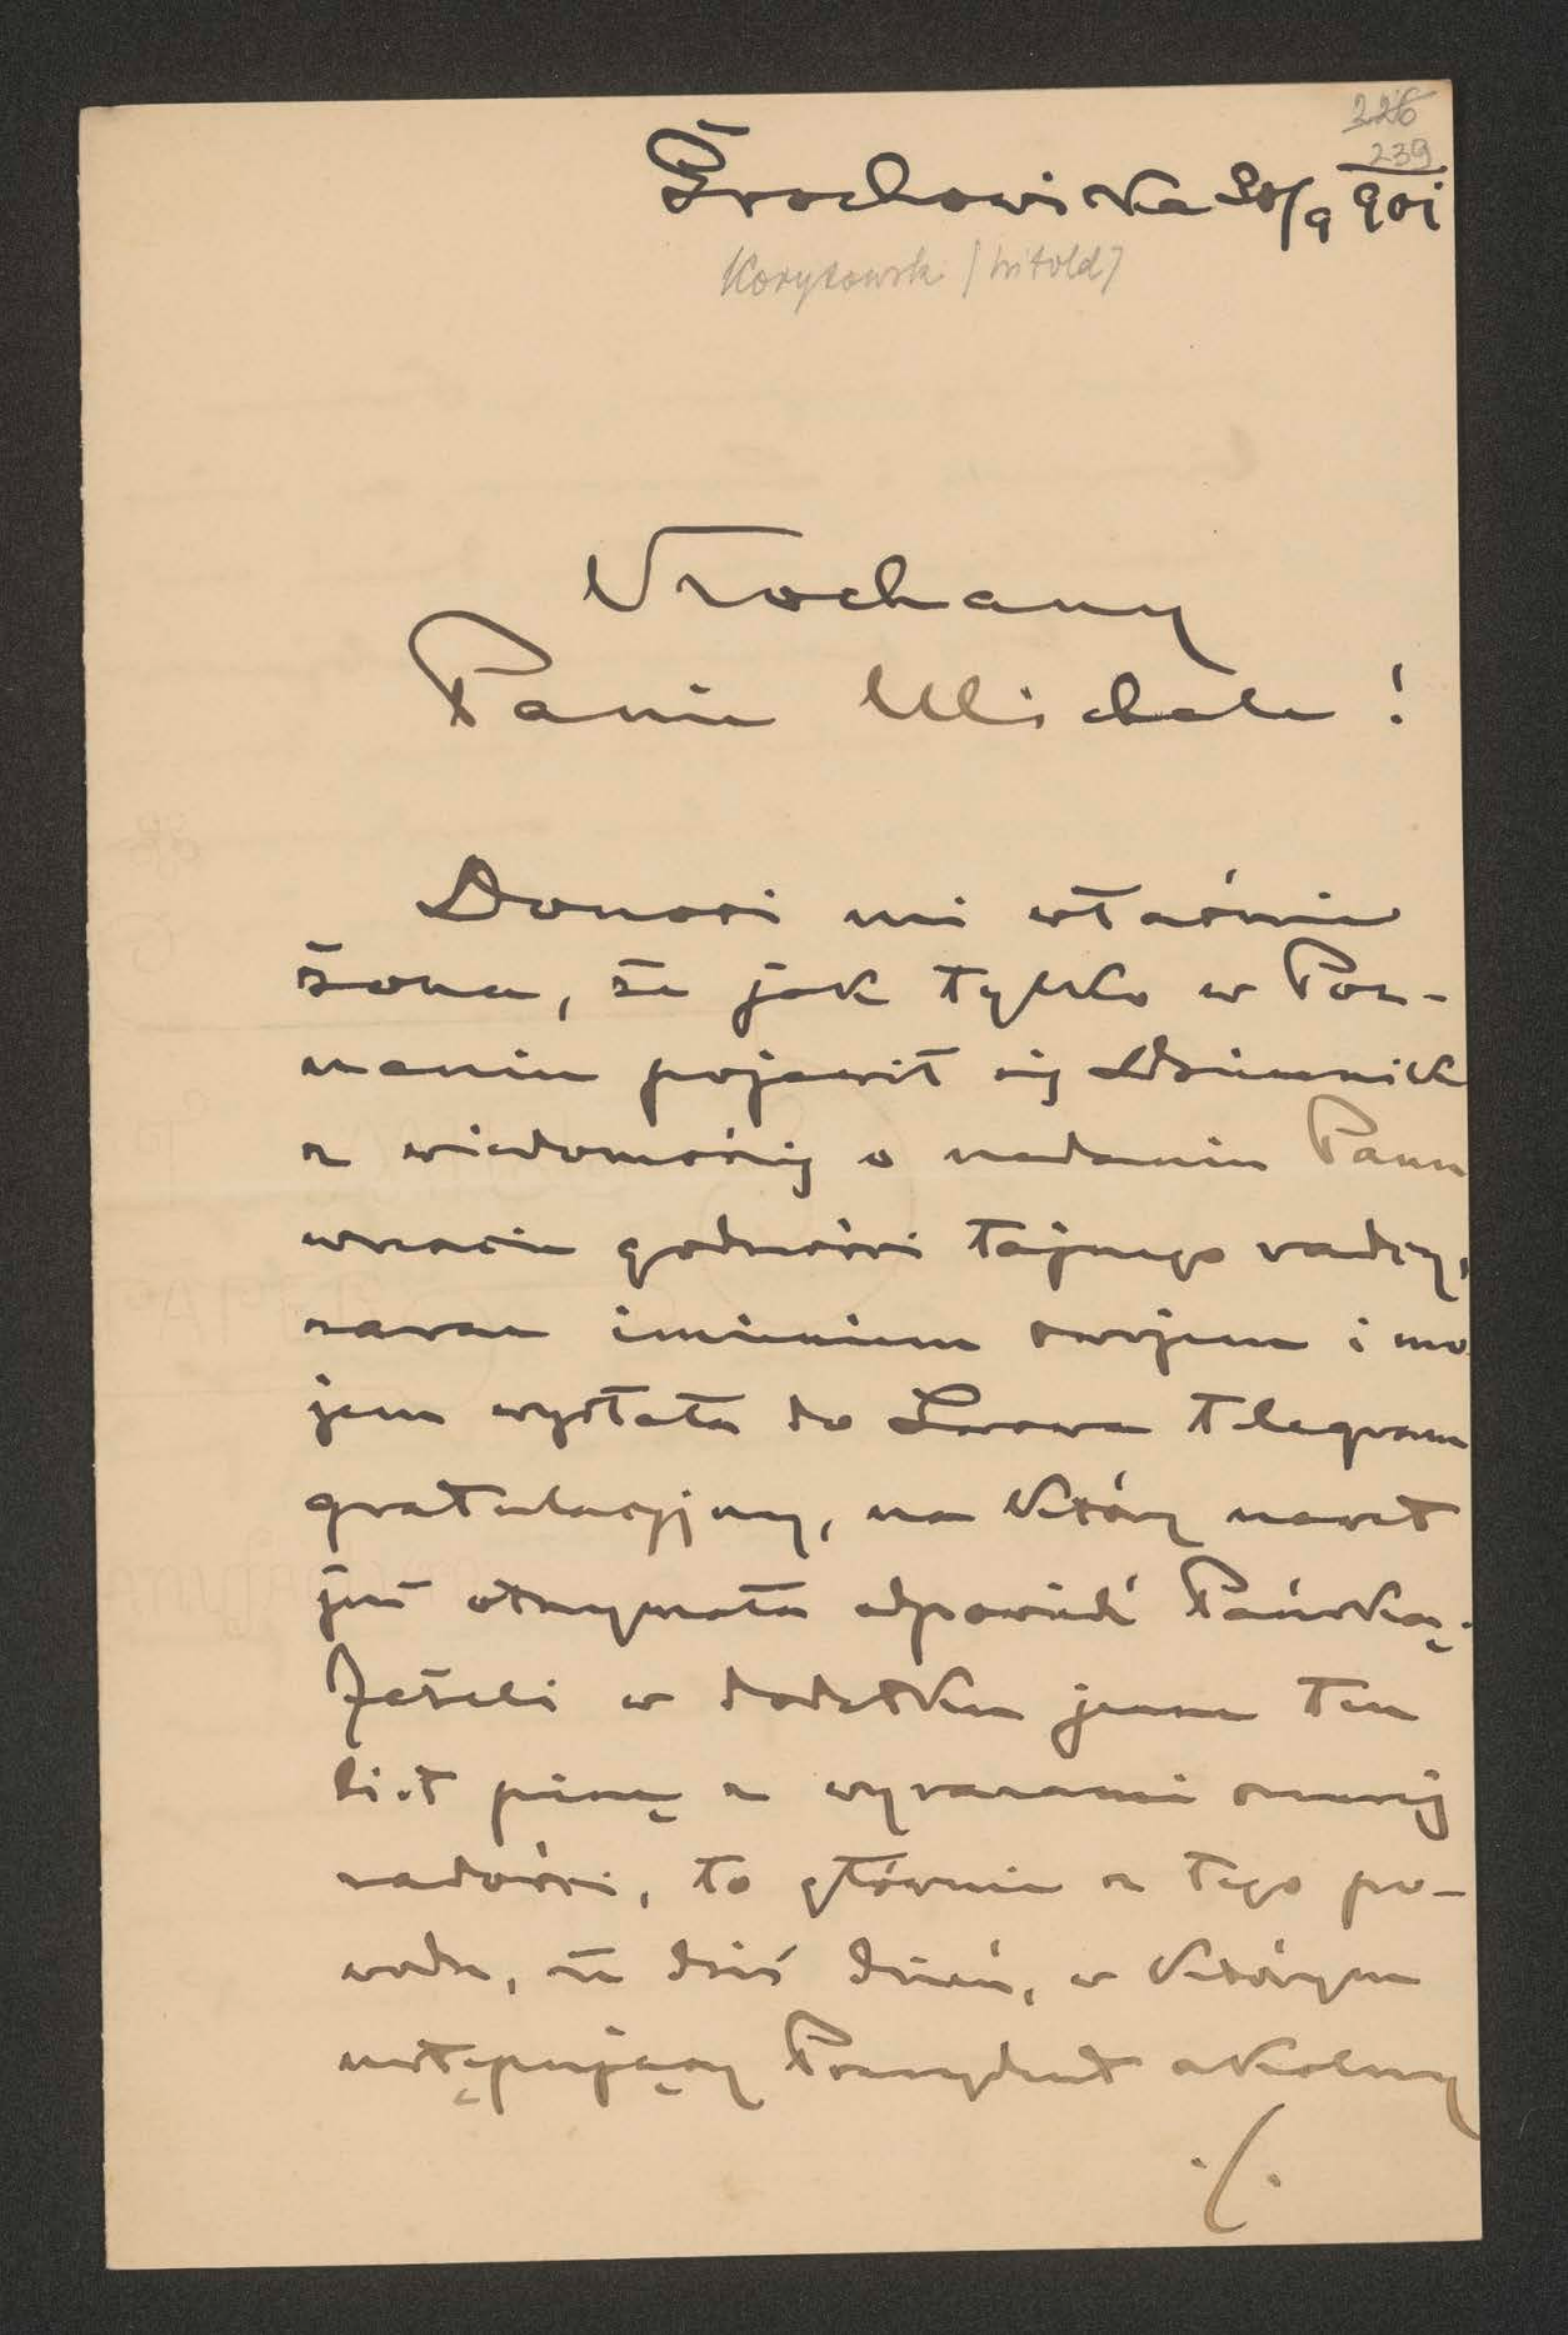 226
239
Grochowiska 20/9 901
Korytowski (Witold)
Kochany
Panie Michale!
Donosi mi właśnie
żona, że jak tylko w Poz-
naniu pojawił się Dziennik
z wiadomością o nadaniu Panu
wreszcie godności tajnego radcy,
zaraz imieniem swojem i mo
jem wysłała do Lwowa telegram
gratulacyjny, na który nawet
już otrzymała odpowiedź Pańską.
Jeżeli w dodatku jeszcze ten
list piszę z wyrazami szczerej
radości, to głównie z tego po-
wodu, że dziś dzień, w którym
ustępujący Prezydent szkolny
./.